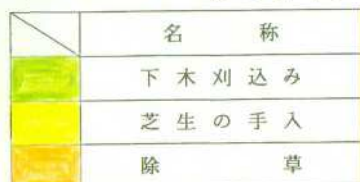 名称
下木刈込み
芝生の手入
除草